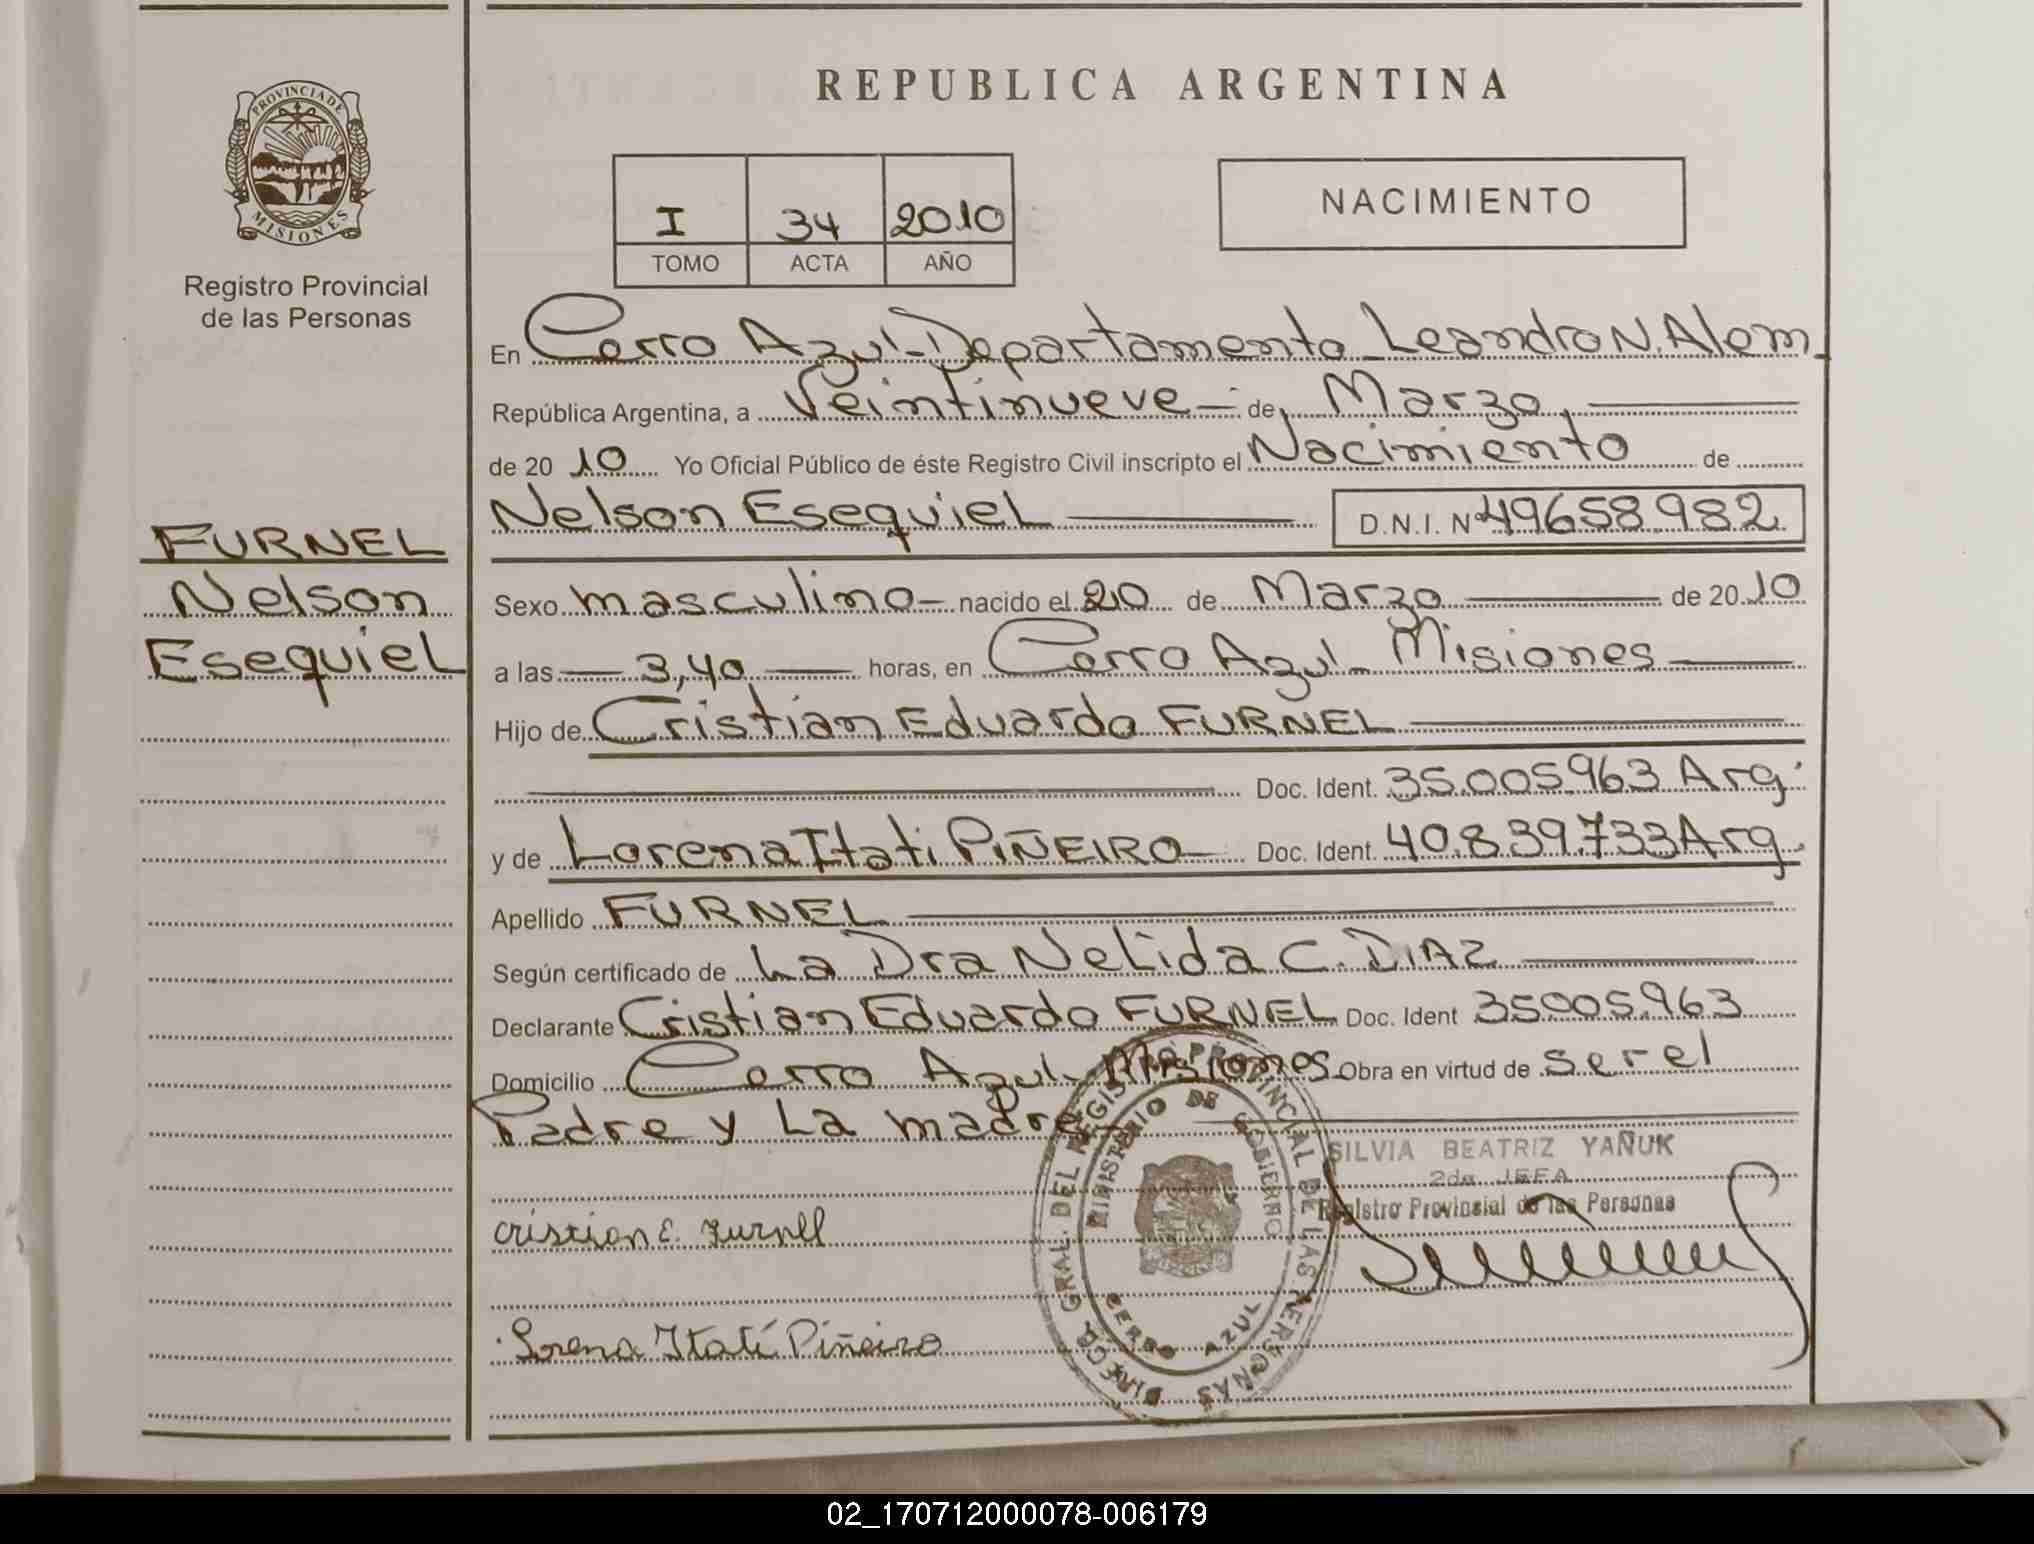 REPUBLICA ARGENTINA
PROVINCIA DE
MISIONES
Registro Provincial
de las Personas
I 34 2010
TOMO ACTA AÑO
NACIMIENTO
En Cerro Azul-Departamento Leandro N. Alem
República Argentina, a Veintinueve de Marzo,
de 2010 Yo Oficial Público de éste Registro Civil inscripto el Nacimiento de
Nelson Esequiel D.N.I. Nº 49658.982
FURNEL
Nelson
Esequiel
Sexo masculino nacido el 20 de Marzo de 2010
a las 3,40 horas, en Cerro Azul- Misiones
Hijo de Cristian Eduardo FURNEL
Doc. Ident. 35.005.963 Arg.
y de Lorena Itati PIÑEIRO Doc. Ident. 40.839.733 Arg.
Apellido FURNEL
Según certificado de La Dra Nelida C. DIAZ
Declarante Cristian Eduardo FURNEL Doc. Ident 35005.963
Domicilio Cerro Azul- Misiones Obra en virtud de ser el
Padre y La madre
SILVIA BEATRIZ YAÑUK
2da JEFA
Registro Provincial de las Personas
cristian E. Furnell
Lorena Itatí Piñeiro
DIREC. GRAL. DEL REGISTRO PROVINCIAL DE LAS PERSONAS
MINISTERIO DE GOBIERNO
CERRO AZUL
02_170712000078-006179